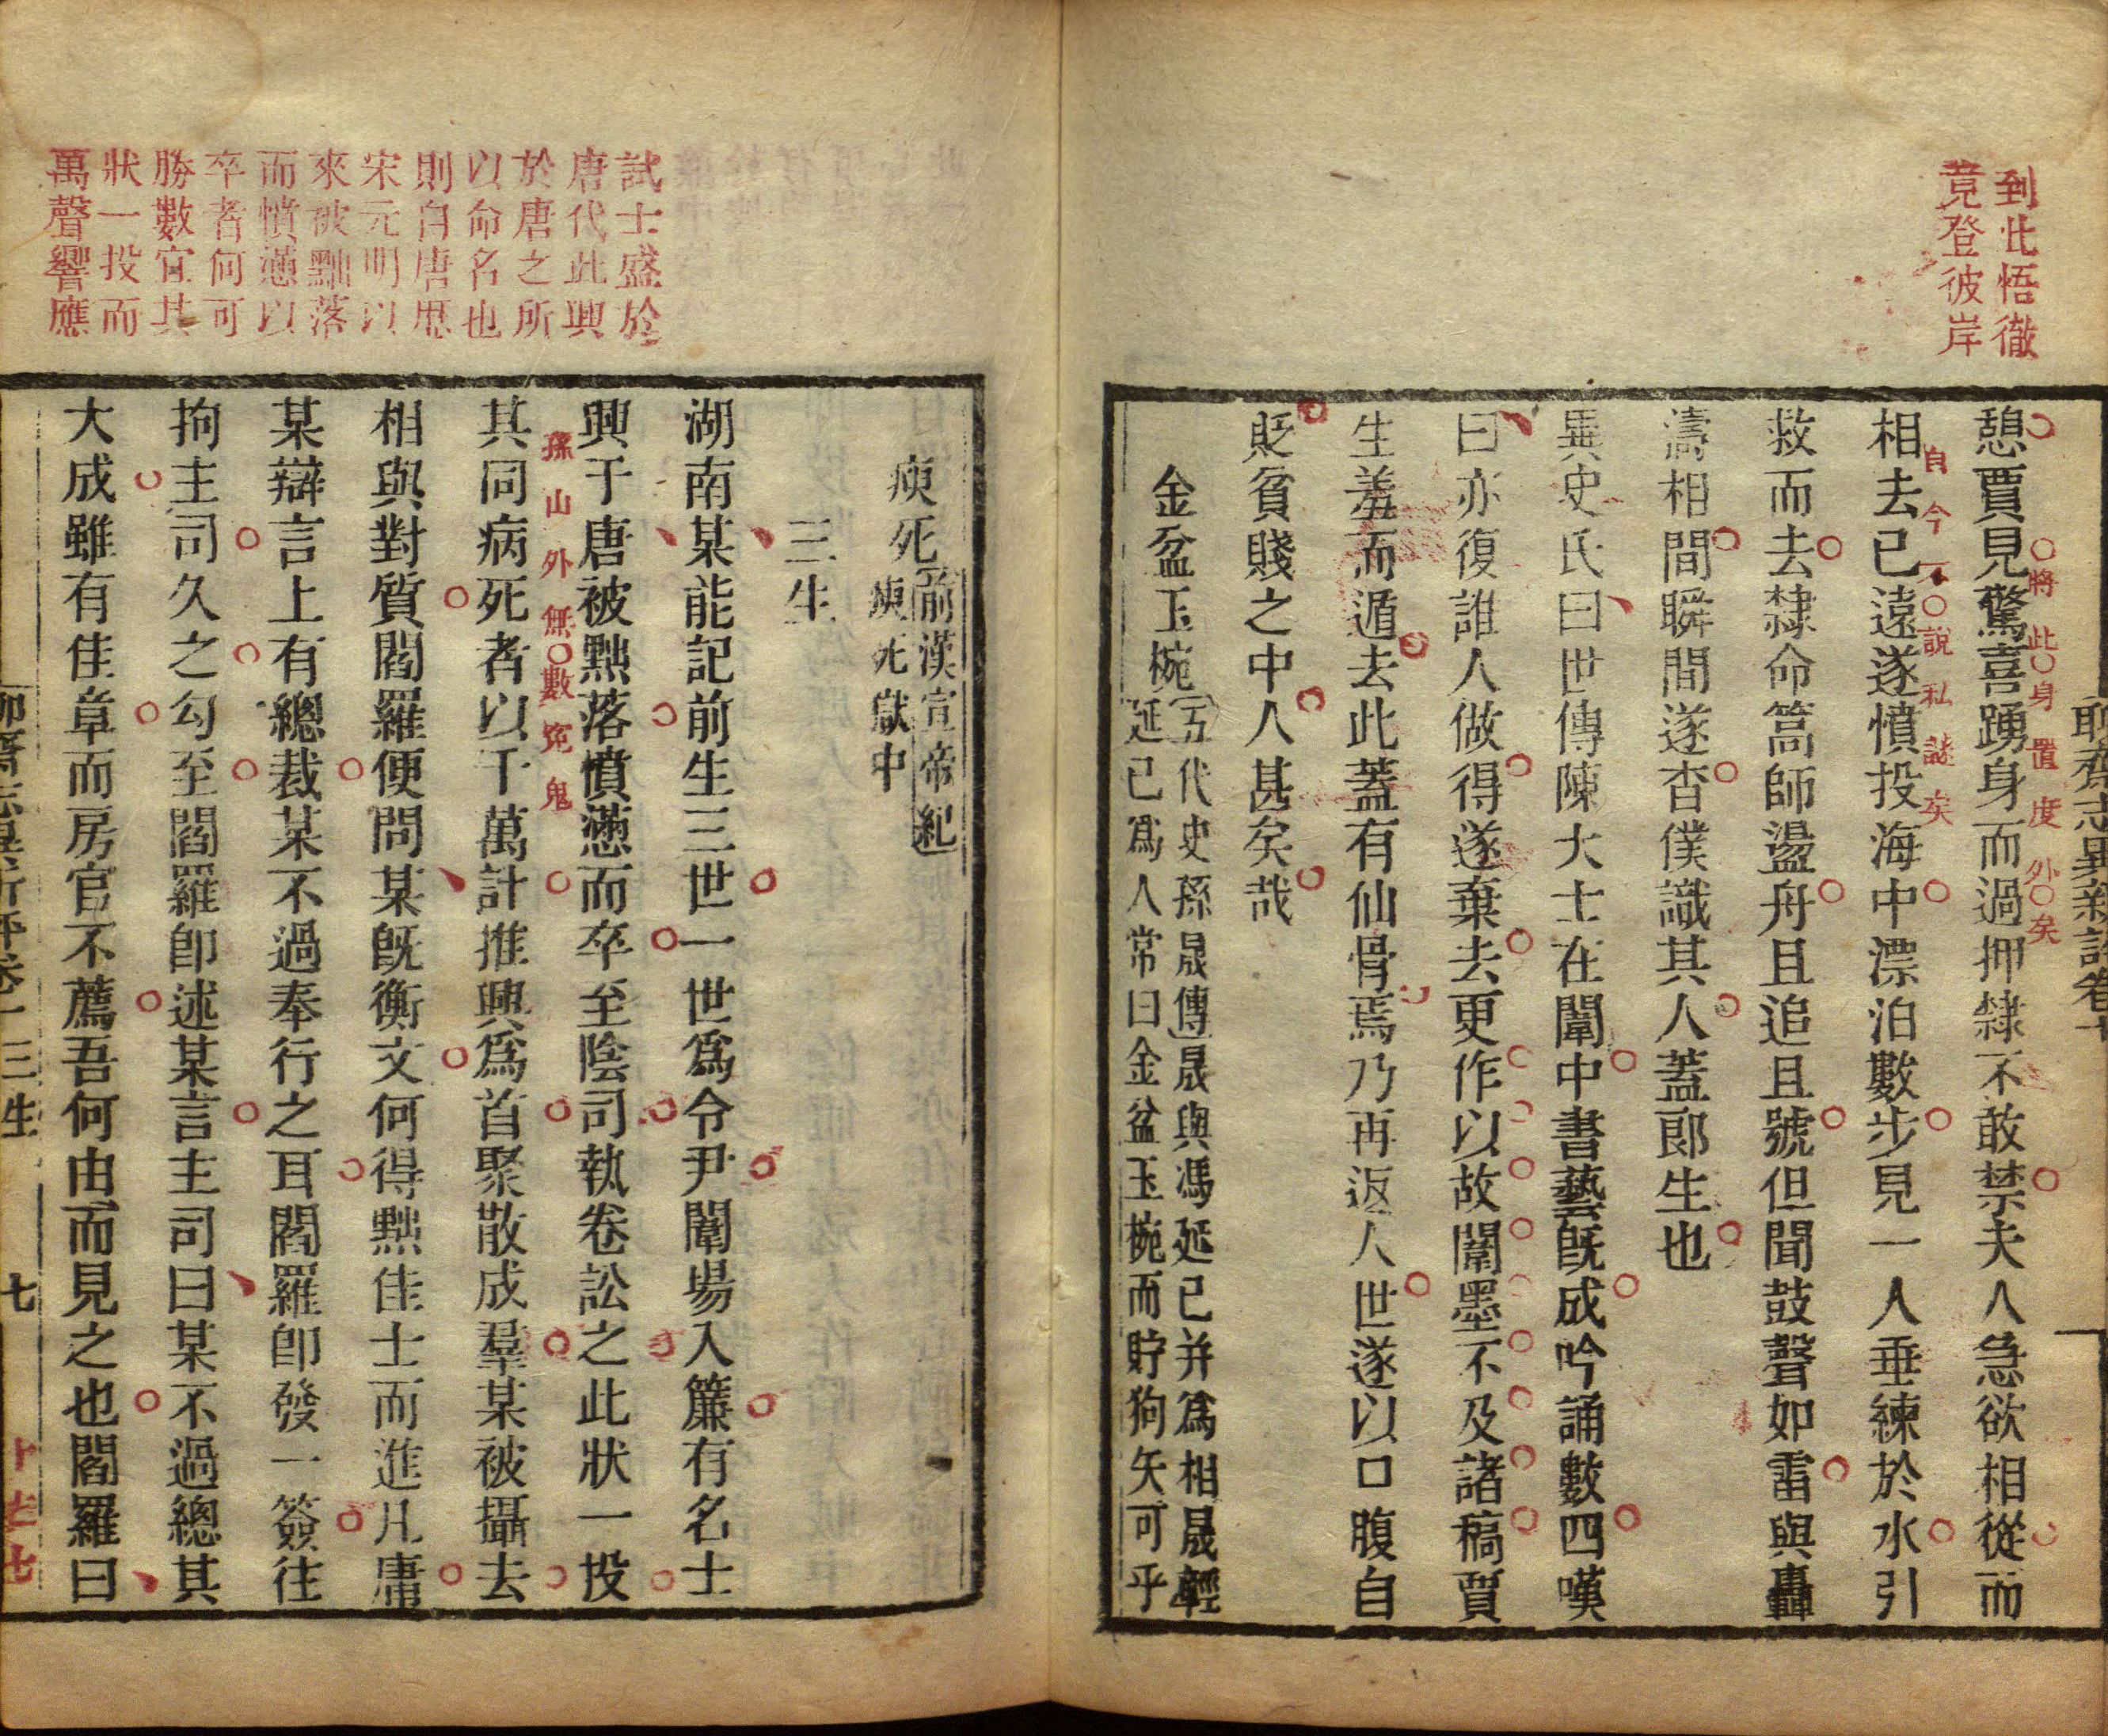 到此悟徹
竟登彼岸
聊齋志異新評卷十
憩賈見驚喜踴身而過押隸不敢禁夫人急欲相從而
將此身置度外矣
相去已遠遂憤投海中漂泊數步見一人垂練於水引
自今不說私謎矣
救而去隸命篙師盪舟且追且號但聞鼓聲如雷與轟
濤相間瞬間遂杳僕識其人蓋郎生也
異史氏曰世傳陳大士在闈中書藝既成吟誦數四嘆
曰亦復誰人做得遂棄去更作以故闈墨不及諸稿賈
生羞而遁去此蓋有仙骨焉乃再返人世遂以口腹自
貶貧賤之中人甚矣哉
金盆玉椀
五代史孫晟傳晟與馮延己并爲相晟輕
延己爲人常曰金盆玉椀而貯狗矢可乎
試士盛於
唐代此興
於唐之所
以命名也
則自唐歷
宋元明以
來被黜落
而憤懣以
卒者何可
勝數宜其
狀一投而
萬聲響應
瘐死
前漢宣帝紀
瘐死獄中
三生
湖南某能記前生三世一世爲令尹闈場入簾有名士
興于唐被黜落憤懣而卒至陰司執卷訟之此狀一投
孫山外無數冤鬼
其同病死者以千萬計推興爲首聚散成羣某被攝去
相與對質閻羅便問某既衡文何得黜佳士而進凡庸
某辯言上有總裁某不過奉行之耳閻羅即發一簽往
拘主司久之勾至閻羅即述某言主司曰某不過總其
大成雖有佳章而房官不薦吾何由而見之也閻羅曰
聊齋志異新評卷十 三生 七